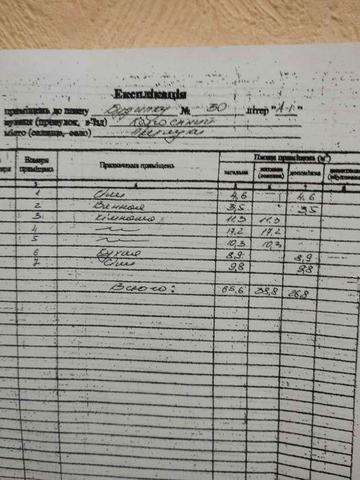 Експлікація
приміщень до плану Будинку № 30 літер "А-1"
вулиця (провулок, в-їзд)
місто (селище, село)
Номери приміщень Призначення приміщень Площа приміщень (м²)
загальна допоміжна
3 4 5 6 7 8
1 Сіни 4,6 4,6
2 Ванная 3,5 3,5
3 кімната 11,3 11,3
4 17,2 17,2
5 10,3 10,3
6 Кухня 8,9 8,9
7 Сіни 9,8 9,8
Всього: 65,6 38,8 26,8